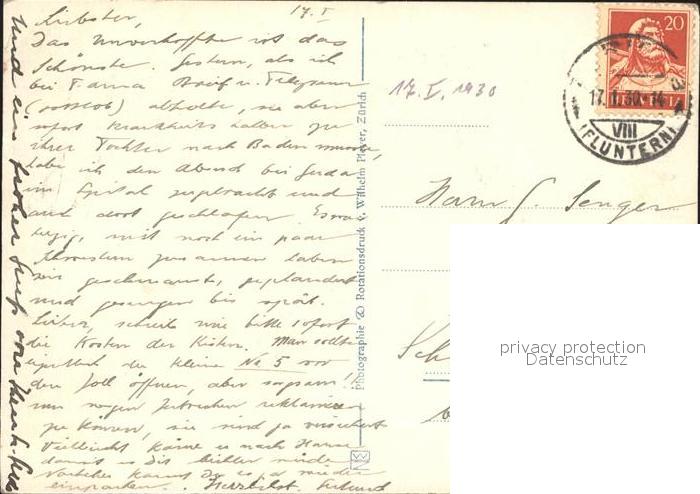 17. I
Liebster,
Das Unverhoffte ist das
Schönste. Gestern, als ich
bei Fanna Brief u. Telegramm
abholte, sie aber
sofort krankheitshalber zu
ihrer Tochter nach Baden musste,
habe ich den Abend bei Gerda
im Spital zugebracht und
auch dort geschlafen. Es war
mit noch ein paar
Schwestern zusammen haben
wir geschmaust, geplaudert
und gesungen bis spät.
Lieber, schreib mir bitte sofort
die Kosten der Kisten. Man sollte
eigentlich die kleine No 5 vor
dem Zoll öffnen, aber sorgsam!!
um wegen Zerbrochen reklamieren
zu können, sie sind ja versichert
Vielleicht käme es nach Hause
damit es Dir
kannst Du es ja wieder
einpacken. Herzlichst.
und ein froher Gruss von
Photographie & Rotationsdruck v. Wilhelm Pleyer, Zürich
17. I. 1930
20
17.I.30.-14
VIII
(FLUNTERN)
Hans G. Senger
Sch
privacy protection
Datenschutz